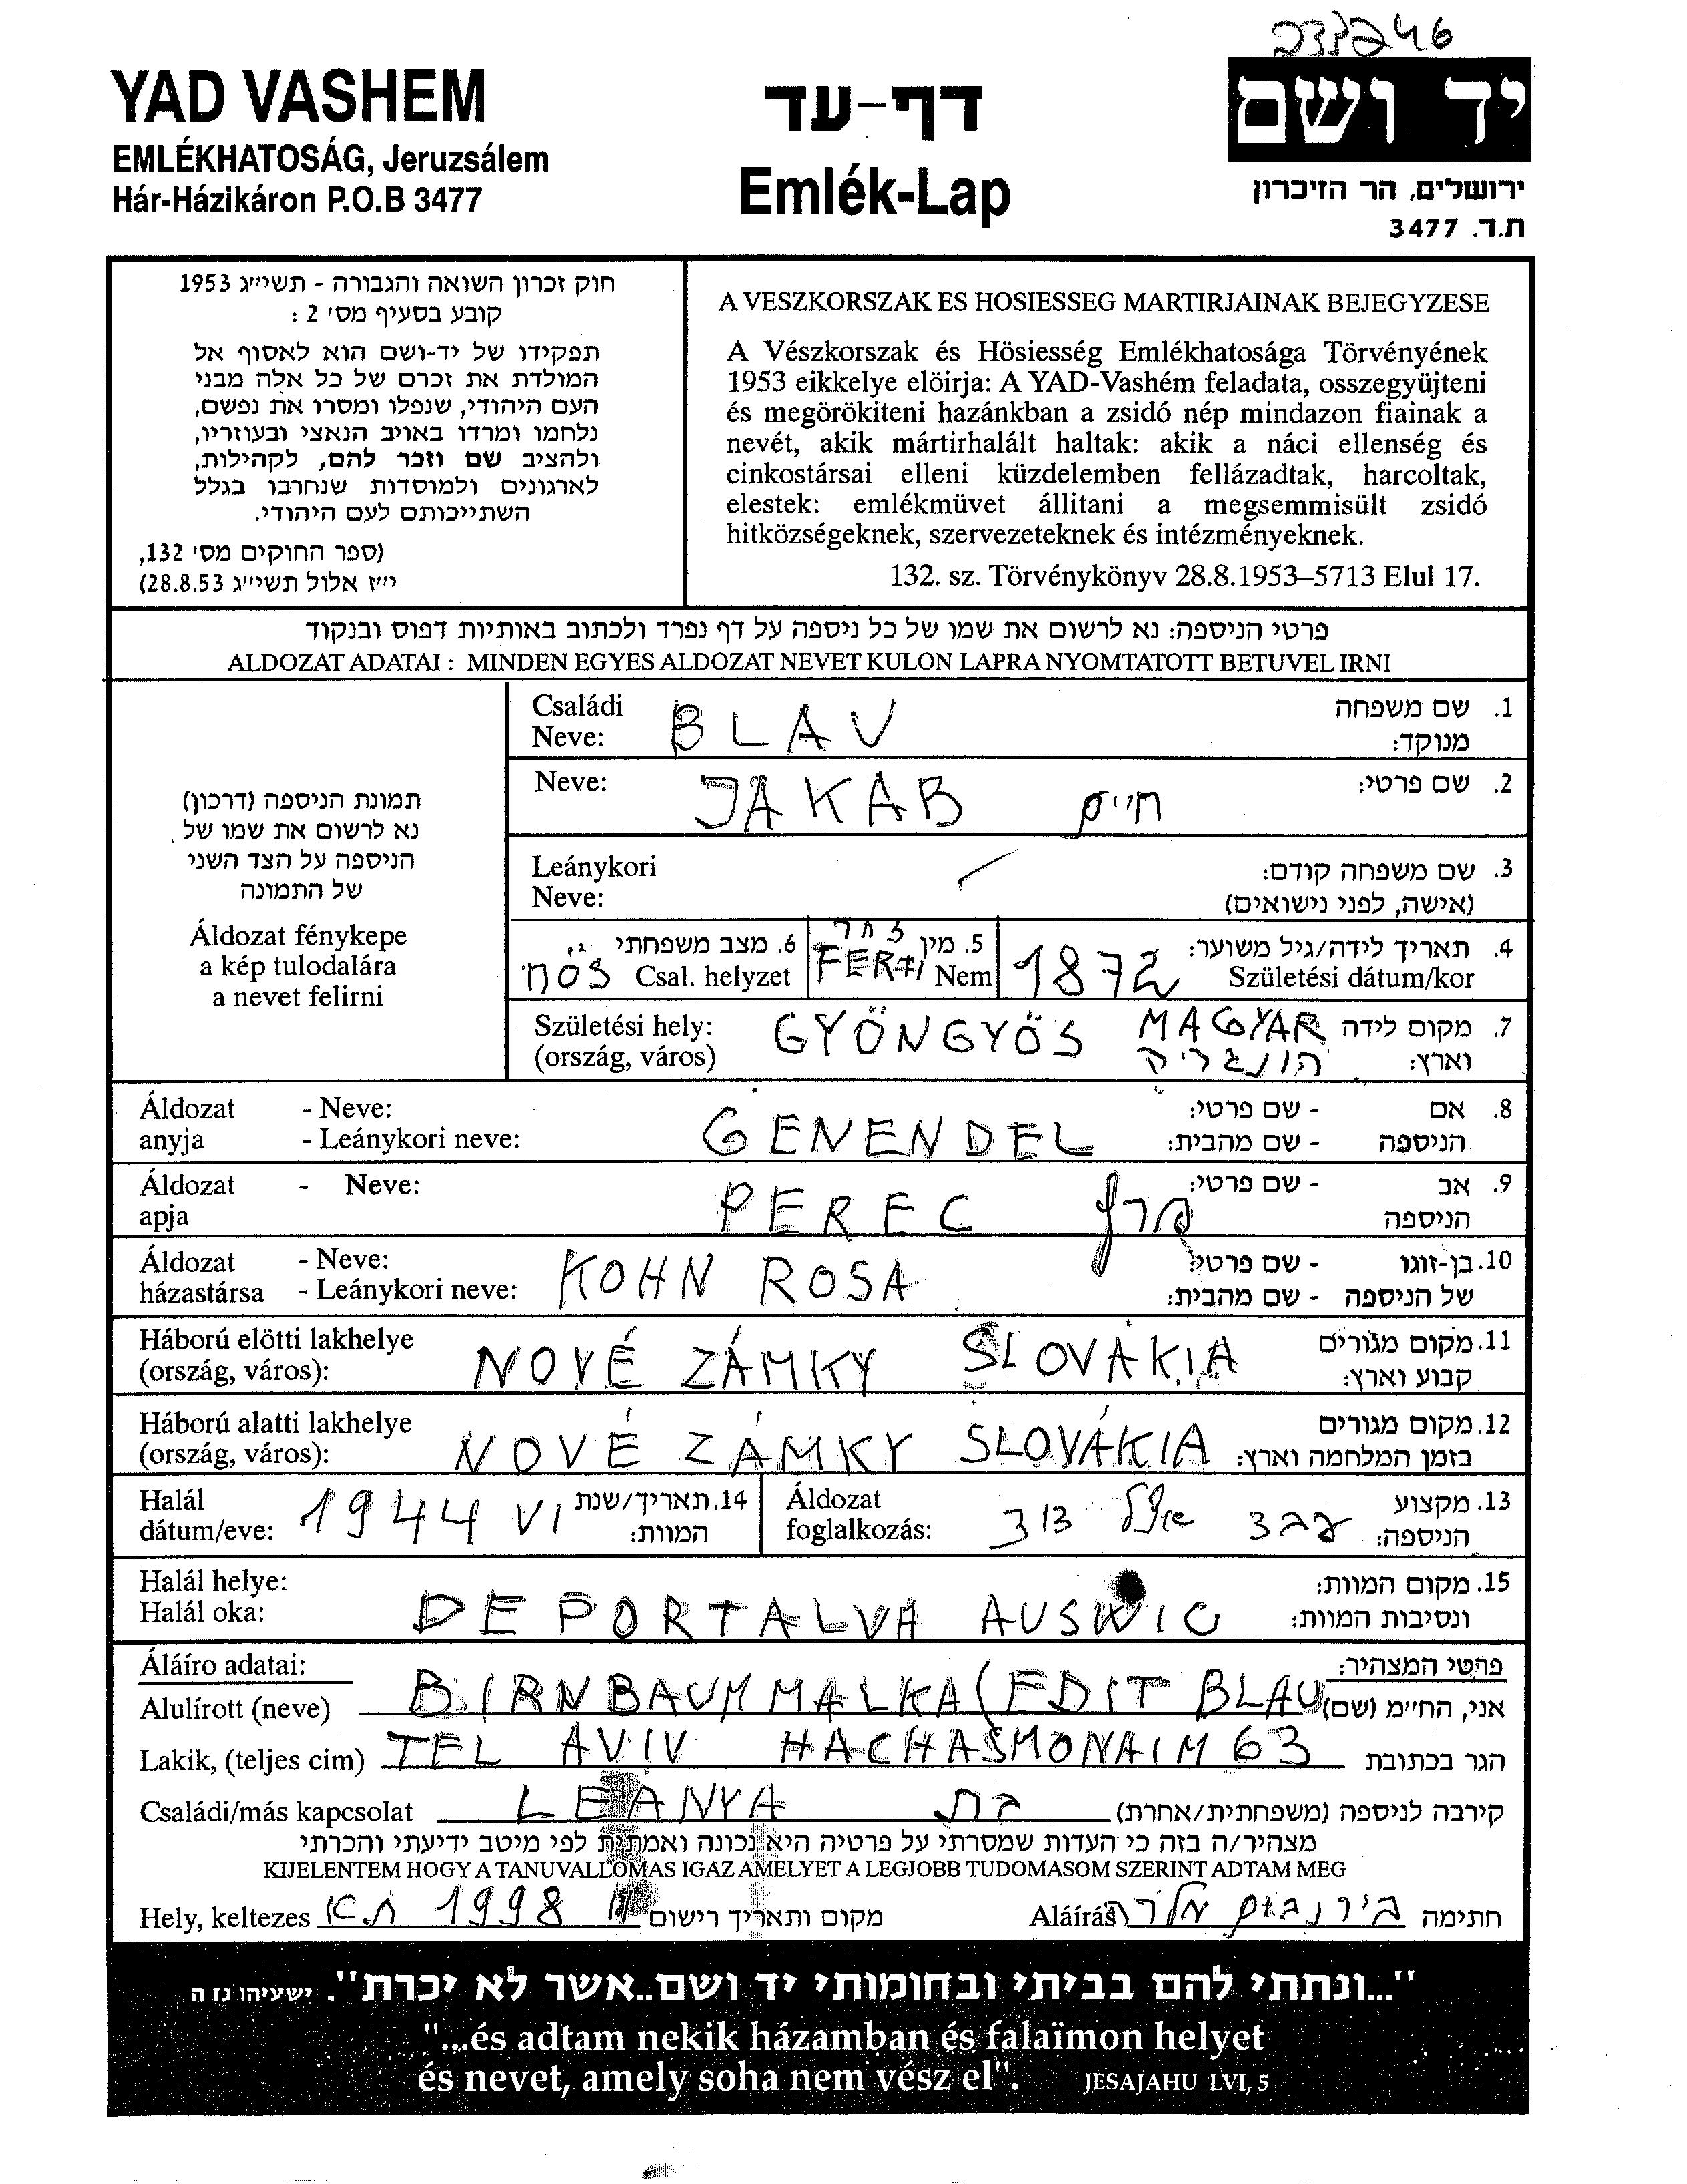 YAD VASHEM
EMLÉKHATOSÁG, Jeruzsálem
Hár-Házikáron P.O.B 3477
דף-עד
Emlék-Lap
יד ושם
ירושלים, הר הזיכרון
ת.ד. 3477
חוק זכרון השואה והגבורה - תשי״ג 1953
קובע בסעיף מס׳ 2 :
תפקידו של יד-ושם הוא לאסוף אל
המולדת את זכרם של כל אלה מבני
העם היהודי, שנפלו ומסרו את נפשם,
נלחמו ומרדו באויב הנאצי ובעוזריו,
ולהציב שם וזכר להם, לקהילות,
לארגונים ולמוסדות שנחרבו בגלל
השתייכותם לעם היהודי.
(ספר החוקים מס׳ 132,
י״ז אלול תשי״ג 28.8.53)
A VESZKORSZAK ES HOSIESSEG MARTIRJAINAK BEJEGYZESE
A Vészkorszak és Hösiesség Emlékhatosága Törvényének
1953 eikkelye elöirja: A YAD-Vashém feladata, osszegyüjteni
és megörökiteni hazánkban a zsidó nép mindazon fiainak a
nevét, akik mártirhalált haltak: akik a náci ellenség és
cinkostársai elleni küzdelemben fellázadtak, harcoltak,
elestek: emlékmüvet állitani a megsemmisült zsidó
hitközségeknek, szervezeteknek és intézményeknek.
132. sz. Törvénykönyv 28.8.1953–5713 Elul 17.
פרטי הניספה: נא לרשום את שמו של כל ניספה על דף נפרד ולכתוב באותיות דפוס ובנקוד
ALDOZAT ADATAI : MINDEN EGYES ALDOZAT NEVET KULON LAPRA NYOMTATOTT BETUVEL IRNI
תמונת הניספה (דרכון)
נא לרשום את שמו של
הניספה על הצד השני
של התמונה
Áldozat fénykepe
a kép tulodalára
a nevet felirni
Családi BLAV 1. שם משפחה
Neve: מנוקד:
Neve: JAKAB חיים 2. שם פרטי:
Leánykori 3. שם משפחה קודם:
Neve: (אישה, לפני נישואים)
6. מצב משפחתי 5. מין זכר 4. תאריך לידה/גיל משוער:
Csal. helyzet FERFI Nem 1872 Születési dátum/kor
Születési hely: GYÖNGYÖS MAGYAR 7. מקום לידה
(ország, város) הונגריה וארץ:
Áldozat - Neve: - שם פרטי: 8. אם
anyja - Leánykori neve: GENENDEL - שם מהבית: הניספה
Áldozat - Neve: - שם פרטי: 9. אב
apja PEREC פרץ הניספה
Áldozat - Neve: KOHN ROSA - שם פרטי 10. בן-זוגו
házastársa - Leánykori neve: - שם מהבית: של הניספה
Háború elötti lakhelye NOVÉ ZÁMKY SLOVÁKIA 11. מקום מגורים
(ország, város): קבוע וארץ:
Háború alatti lakhelye NOVÉ ZÁMKY SLOVÁKIA 12. מקום מגורים
(ország, város): בזמן המלחמה וארץ:
Halál 1944 VI 14. תאריך/שנת Áldozat 13. מקצוע
dátum/eve: המוות: foglalkozás: הניספה:
Halál helye: 15. מקום המוות:
Halál oka: DEPORTALVA AUSWIC ונסיבות המוות:
Áláíro adatai: פרטי המצהיר:
Alulírott (neve) BIRNBAUM MALKA (EDIT BLAU אני, החי״מ (שם)
Lakik, (teljes cim) TEL AVIV HACHASMONAIM 63 הגר בכתובת
Családi/más kapcsolat LEANYA בת קירבה לניספה (משפחתית/אחרת)
מצהיר/ה בזה כי העדות שמסרתי על פרטיה היא נכונה ואמתית לפי מיטב ידיעתי והכרתי
KIJELENTEM HOGY A TANUVALLOMAS IGAZ AMELYET A LEGJOBB TUDOMASOM SZERINT ADTAM MEG
Hely, keltezes 1998 מקום ותאריך רישום Aláírás בירנבוים מלכה חתימה
"...ונתתי להם בביתי ובחומותי יד ושם..אשר לא יכרת". ישעיהו נז ה
"...és adtam nekik házamban és falaïmon helyet
és nevet, amely soha nem vész el". JESAJAHU LVI, 5